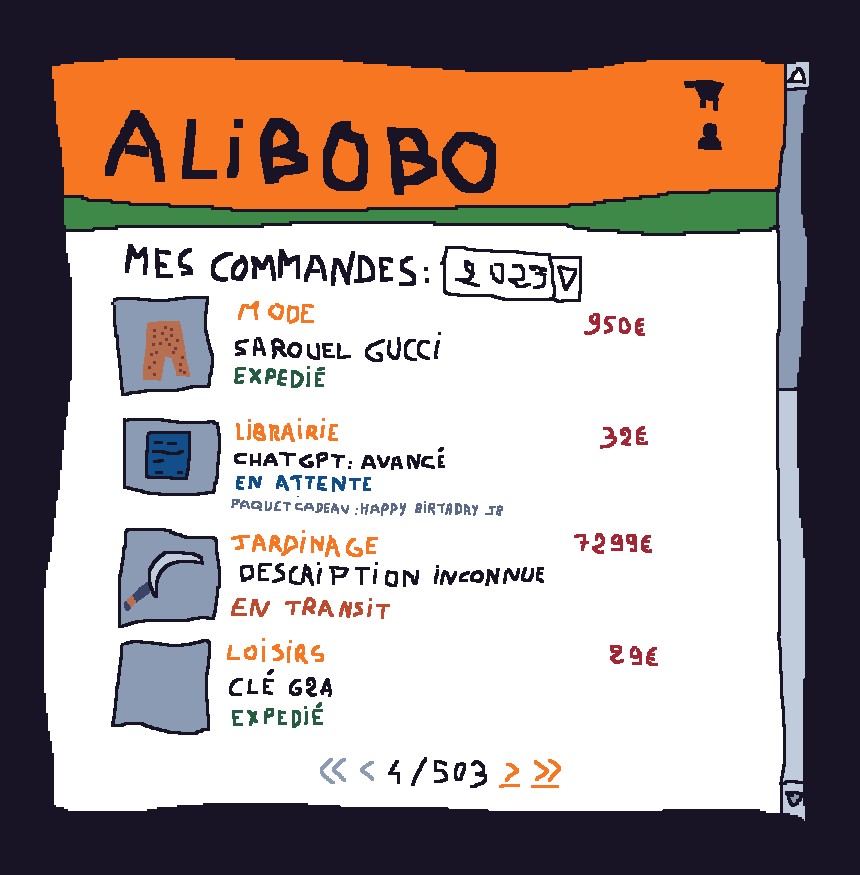 ALiBOBO
MES COMMANDES: 2023
MODE
950€
SAROUEL GUCCi
EXPEDIÉ
LiBRAiRiE
32€
CHATGPT: AVANCÉ
EN ATTENTE
PAQUET CADEAU : HAPPY BIRTHDAY JB
JARDiNAGE
7299€
DESCRiPTiON iNCONNUE
EN TRANSiT
LOiSiRS
29€
CLÉ G2A
EXPEDiÉ
« < 4/503 > »